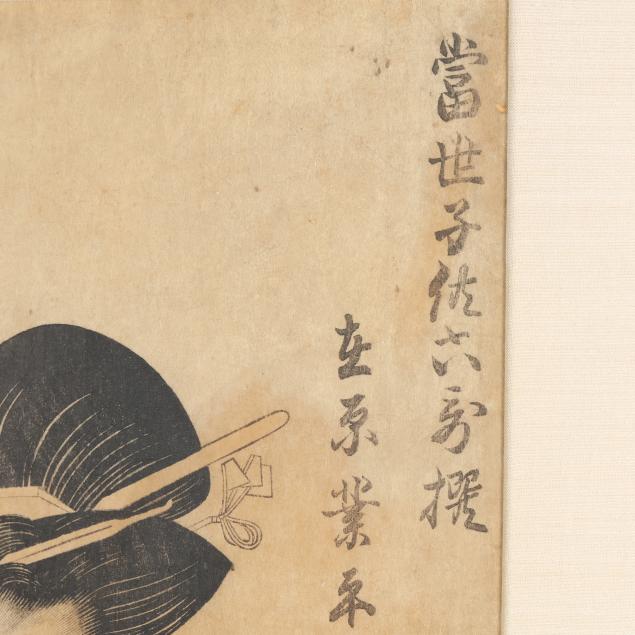 當世子供六歌撰
在原業平